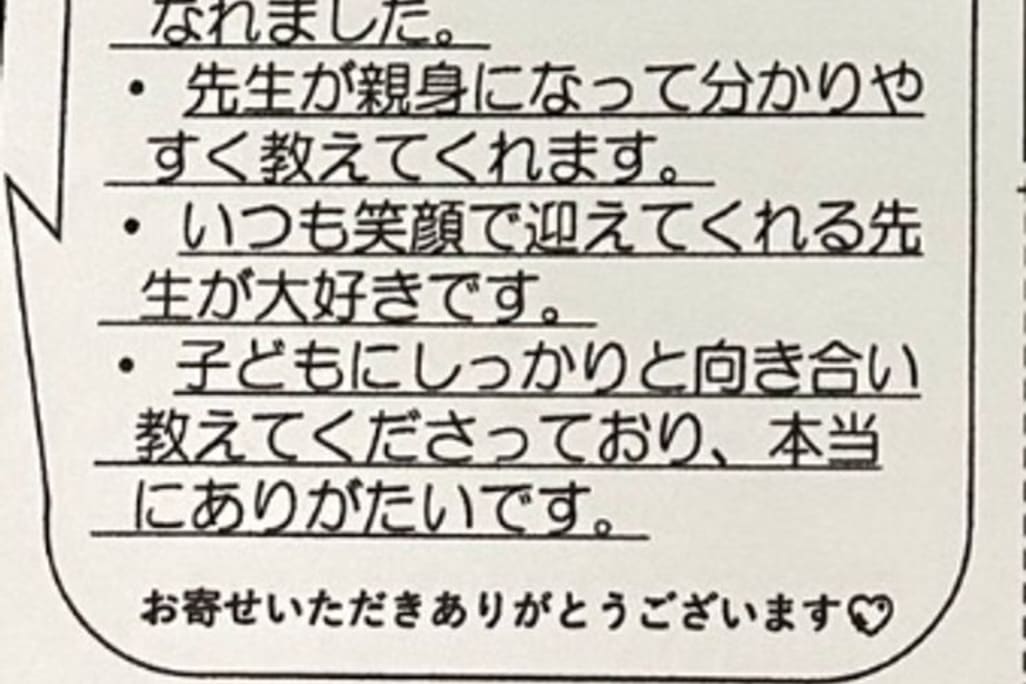 なれました。
・ 先生が親身になって分かりや
すく教えてくれます。
・ いつも笑顔で迎えてくれる先
生が大好きです。
・ 子どもにしっかりと向き合い
教えてくださっており、本当
にありがたいです。
お寄せいただきありがとうございます♡